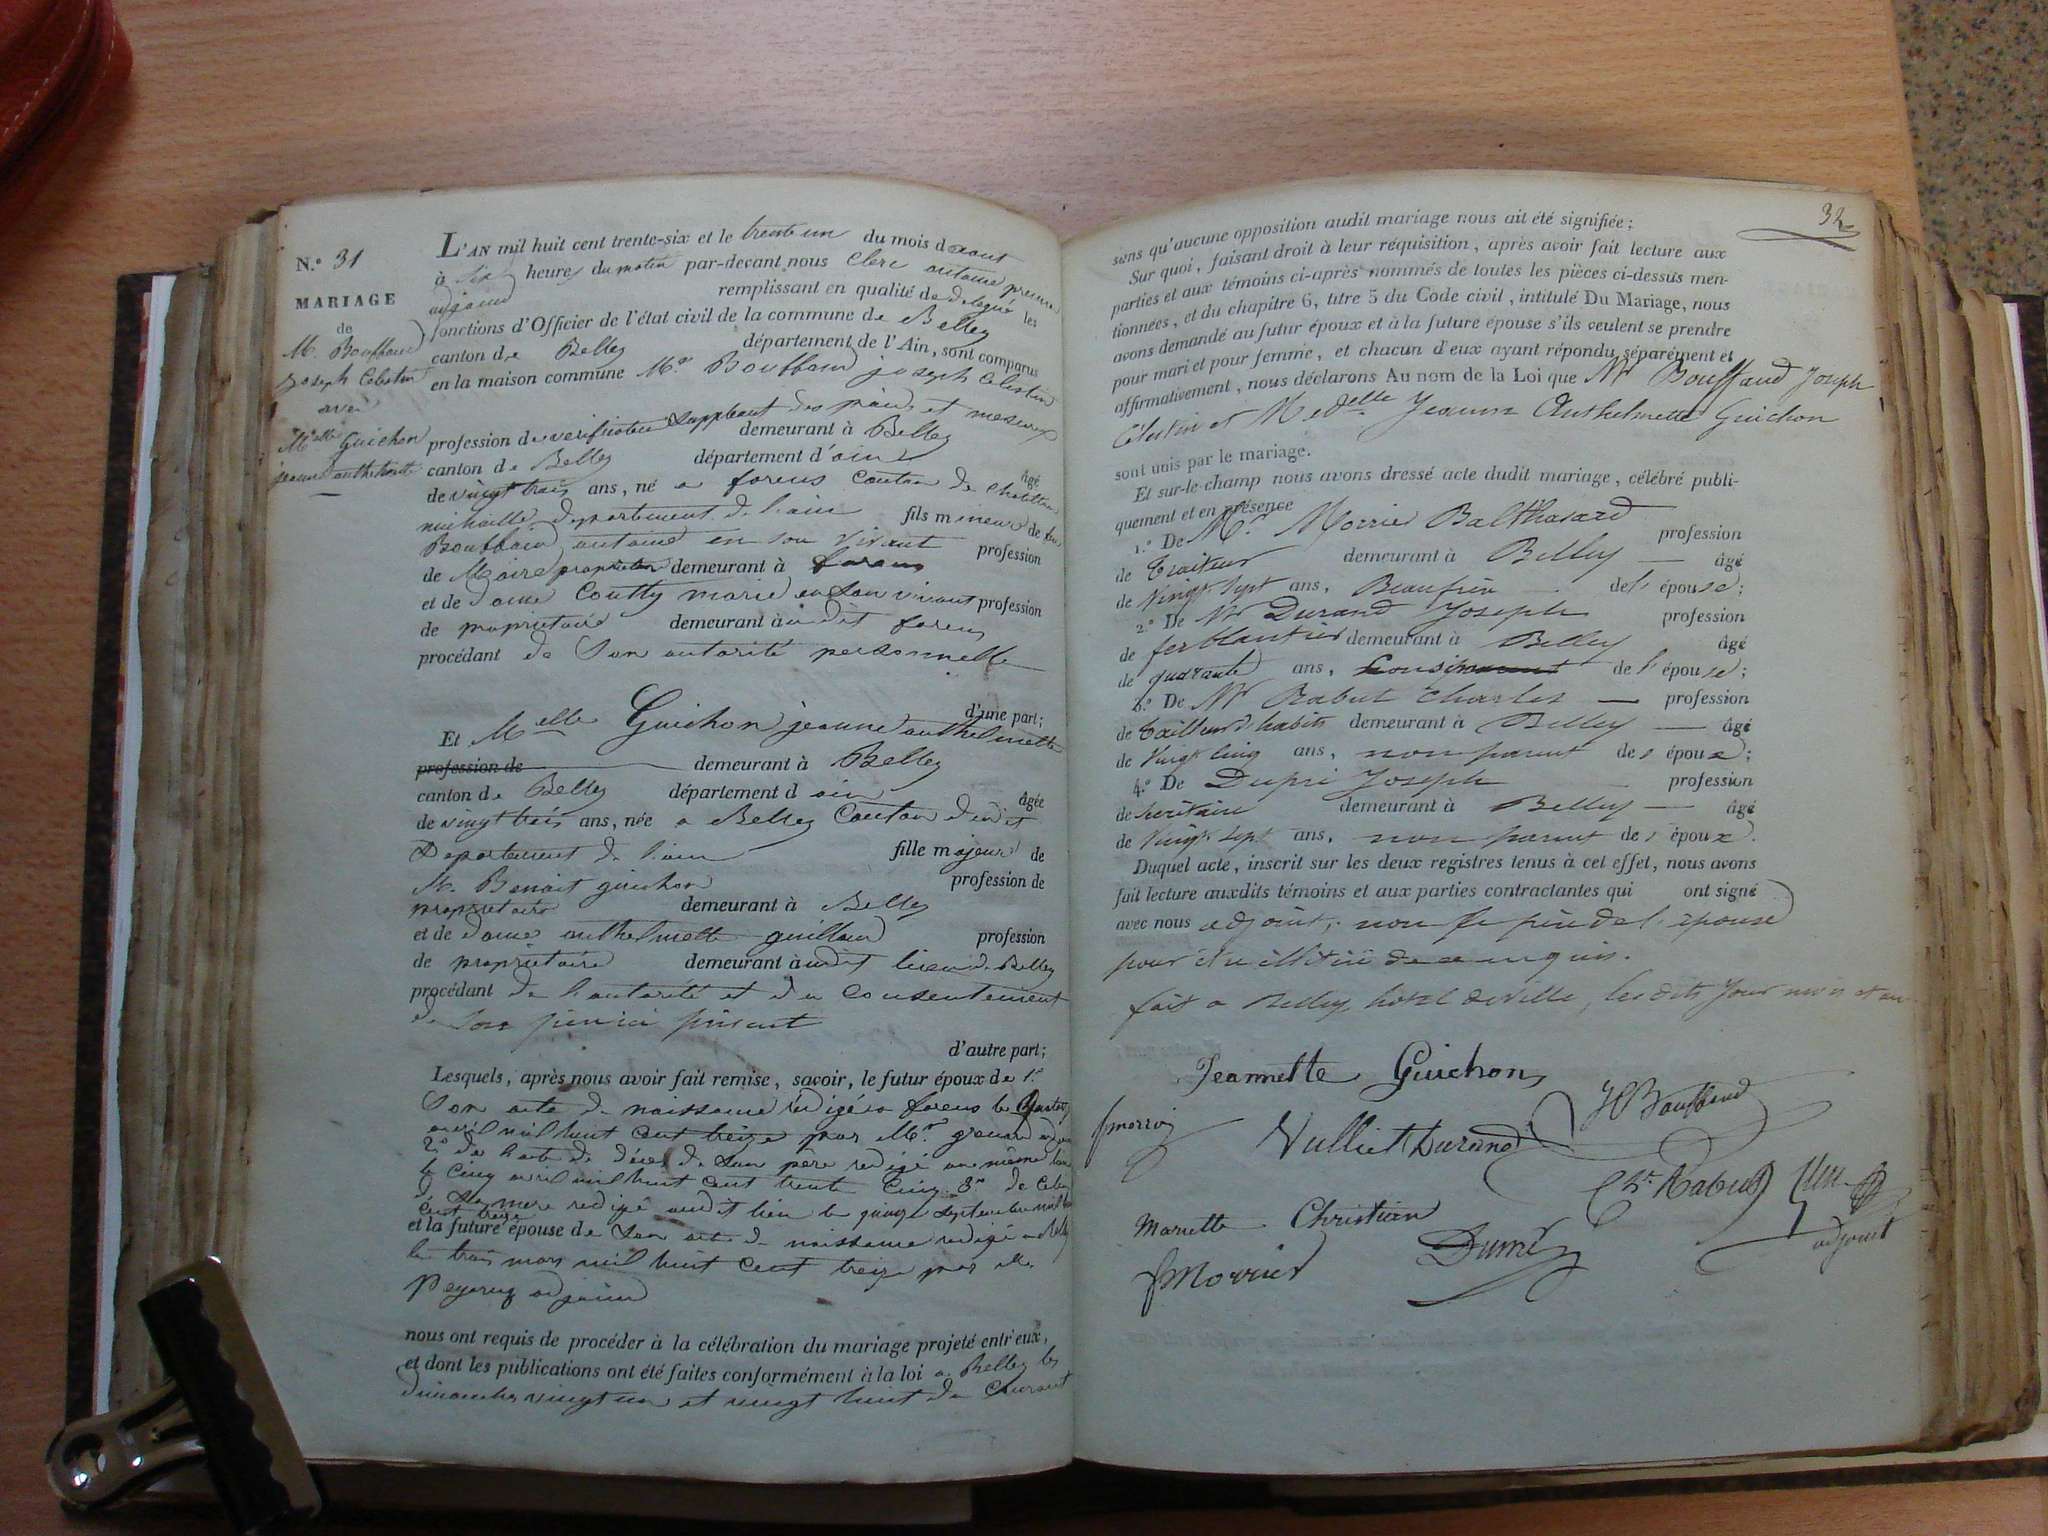 N.° 31
MARIAGE
de
M. Bouffaud
Joseph Celestin
avec
Melle Guichon
jeanne anthelmette
L'AN mil huit cent trente-six et le trente un du mois d'aout
à six heures du matin par-devant nous Clerc antoine premier
adjoint remplissant en qualité de délégué les
fonctions d'Officier de l'état civil de la commune de Belley
canton de Belley département de l'Ain, sont comparus
en la maison commune Mr Bouffaud joseph Celestin
profession de verificateur suppleant des poids et mesures demeurant à Belley
canton de Belley département d'ain âgé
de vingt trois ans, né a forens Canton de Chatillon
michaille departement de l'ain fils mineur de feu
Bouffaud antoine en son vivant profession
de Maire proprietaire demeurant à forens
et de dame Coutty marie en son vivant profession
de proprietaire demeurant à udit forens
procédant de Son autorité personnelle
d'une part;
Et Melle Guichon jeanne anthelmette
profession de demeurant à Belley
canton de Belley département d ain âgée
de vingt trois ans, née a Belley Canton dudit
Departement de l'ain fille majeure de
M. Benoit guichon profession de
proprietaire demeurant à Belley
et de dame anthelmette guilland profession
de proprietaire demeurant à udit lieu de Belley
procédant de l'autorité et du Consentement
de Son père ici présent
d'autre part;
Lesquels, après nous avoir fait remise, savoir, le futur époux de 1°
Son acte de naissance rédigé a forens le
avril mil huit cent treize par Mr
2° de l'acte de décès de Son père redigé au même lieu
le cinq avril mil huit cent trente Cinq 3° de Celui
de Sa mere redigé audit lieu le quinze septembre mil huit
cent treize
et la future épouse de Son acte de naissance redigé a Belley
le trois mars mil huit cent treize par Mr
adjoint
nous ont requis de procéder à la célébration du mariage projeté entr'eux,
et dont les publications ont été faites conformément à la loi a Belley les
dimanches vingt un et vingt huit du Courant
32
sans qu'aucune opposition audit mariage nous ait été signifiée;
Sur quoi, faisant droit à leur réquisition, après avoir fait lecture aux
parties et aux témoins ci-après nommés de toutes les pièces ci-dessus men-
tionnées, et du chapitre 6, titre 5 du Code civil, intitulé Du Mariage, nous
avons demandé au futur époux et à la future épouse s'ils veulent se prendre
pour mari et pour femme, et chacun d'eux ayant répondu séparément et
affirmativement, nous déclarons Au nom de la Loi que Mr Bouffaud Joseph
Célestin et Medelle Jeanne Anthelmette Guichon
sont unis par le mariage.
Et sur-le-champ nous avons dressé acte dudit mariage, célébré publi-
quement et en présence
1.° De Mr. Morrier Balthasard profession
de traiteur demeurant à Belley âgé
de Vingt Sept ans, Beaufrère de l'épouse;
2.° De Mr Durand Joseph profession
de ferblantier demeurant à Belley âgé
de quarante ans, de l'épouse;
3.° De Mr Rabut Charles profession
de Tailleur d'habits demeurant à Belley âgé
de Vingt Cinq ans, non parent des époux;
4.° De Dupré Joseph profession
de demeurant à Belley âgé
de Vingt Sept ans, non parent des époux.
Duquel acte, inscrit sur les deux registres tenus à cet effet, nous avons
fait lecture auxdits témoins et aux parties contractantes qui ont signé
avec nous adjoint, non le père de l'épouse
pour être illitéré de ce enquis.
fait a Belley hotel de Ville, les dits Jour mois et an
Jeannette Guichon
JC Bouffaud
Vulliet Durand
Ch. Rabut
adjoint
Mariette Christian
Morrier